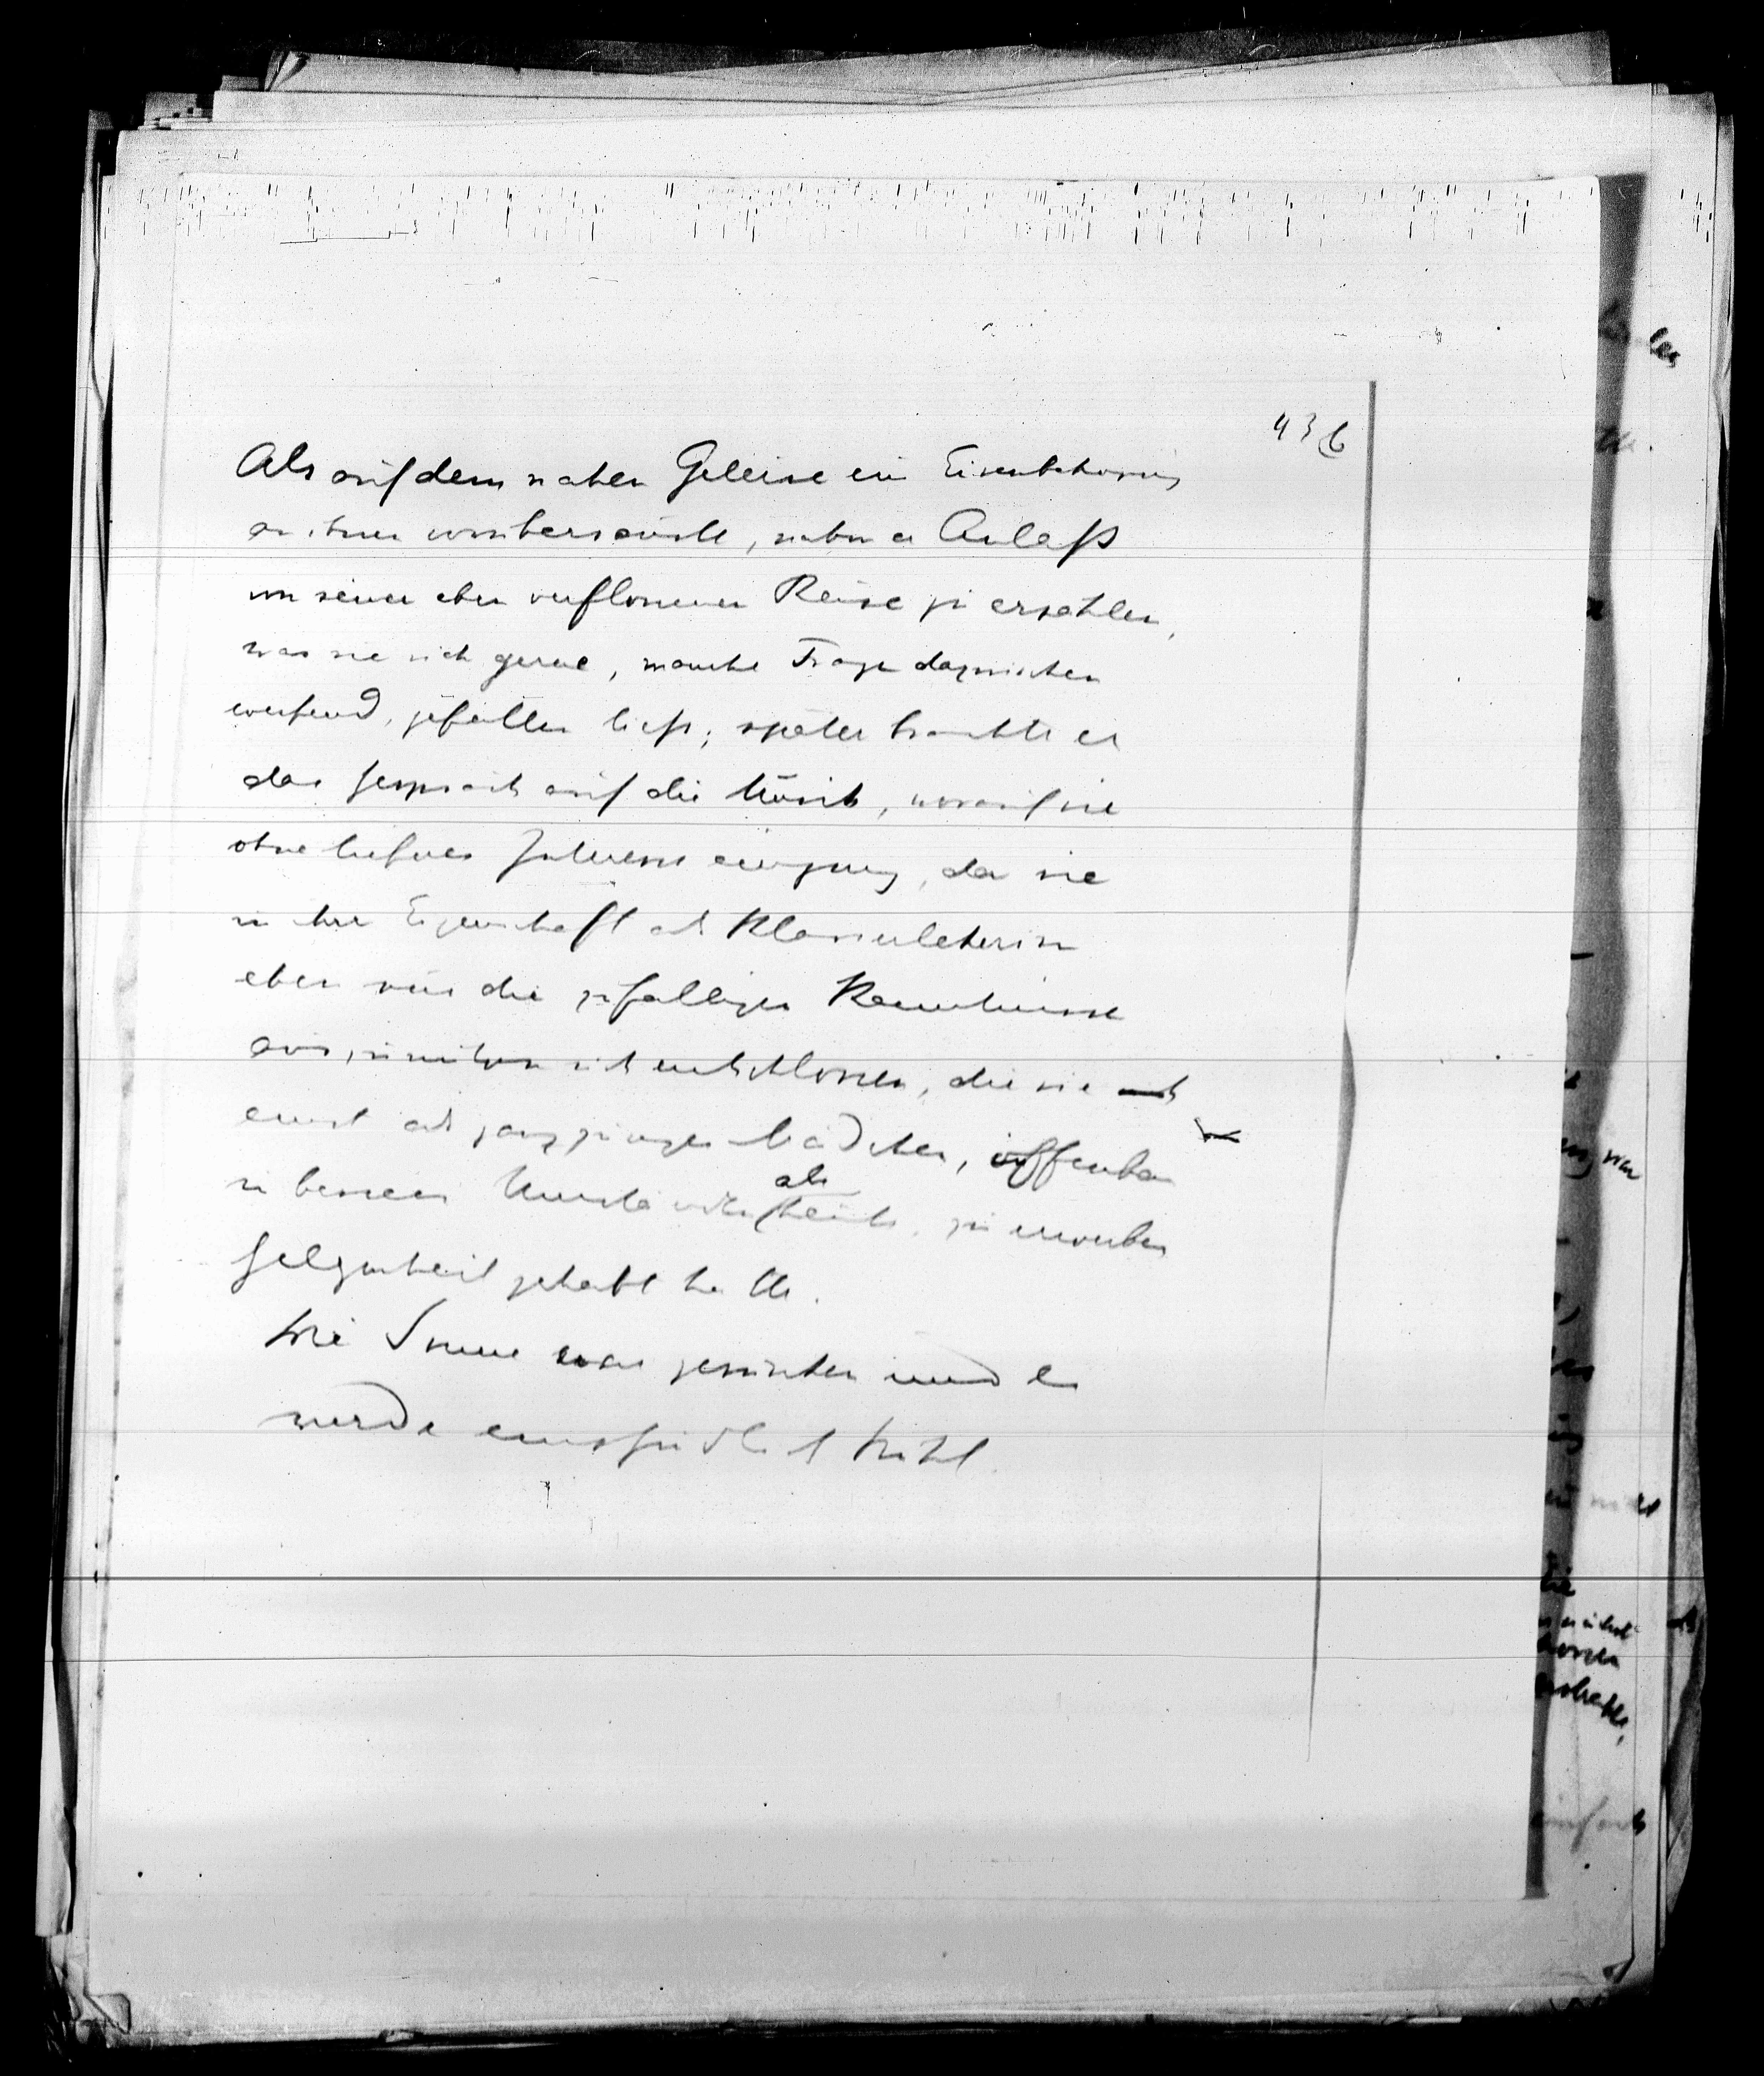 43b
Als auf dem nahen Geleise ein Eisenbahnzug
an ihnen vorübersauste, nahm er Anlaß
von seiner eben verflossenen Reise zu erzählen,
was sie sich gerne, manche Frage dazwischen
werfend, gefallen ließ; später brachte er
das Gespräch auf die Musik, worauf sie
ohne tieferes Interesse einging, da sie
in ihrer Eigenschaft als Klavierlehrerin
eben nur die zufälligen Kenntnisse
auszunützen sich entschlossen, die sie
einst als ganz junges Mädchen, offenbar
in besseren Umständen als heute, zu erwerben
Gelegenheit gehabt hatte.
Die Sonne war gesunken und es
wurde empfindlich kühl.